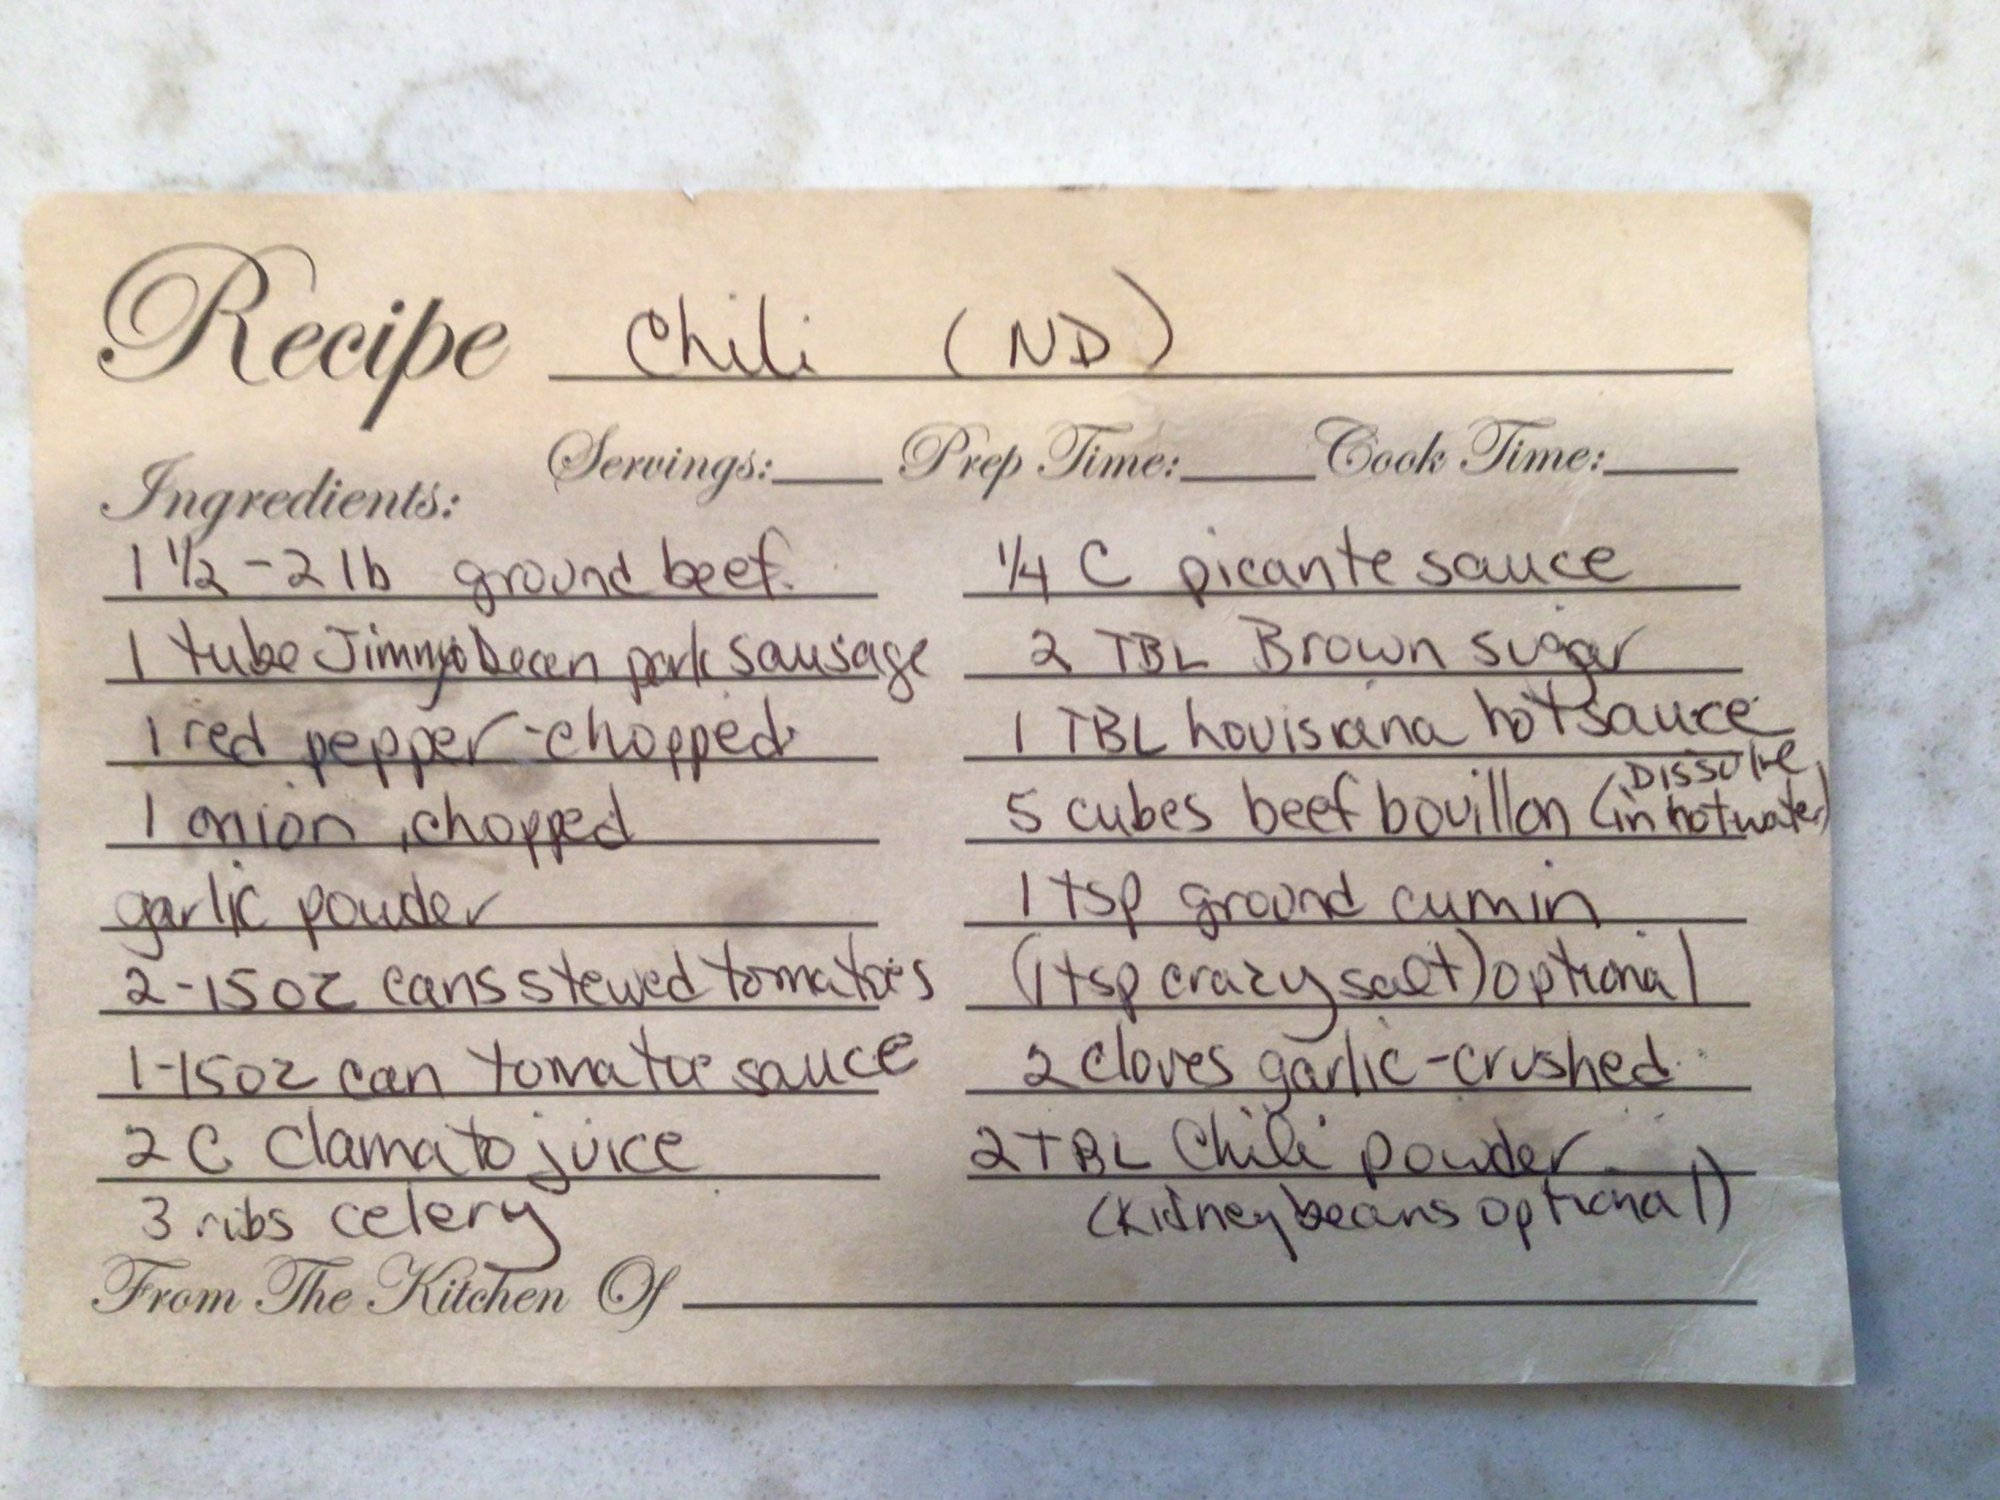 Recipe Chili (ND)
Servings: Prep Time: Cook Time:
Ingredients:
1 1/2 - 2 lb ground beef
1 tube Jimmy Dean pork sausage
1 red pepper - chopped
1 onion, chopped
garlic powder
2 - 15 oz cans stewed tomatoes
1 - 15 oz can tomatoe sauce
2 C Clamato juice
3 ribs celery
1/4 C picante sauce
2 TBL Brown sugar
1 TBL Louisiana hot sauce
5 cubes beef bouillon (Dissolve
in hot water)
1 tsp ground cumin
(1 tsp crazy salt) optional
2 cloves garlic - crushed
2 TBL Chili powder
(Kidney beans optional)
From The Kitchen Of